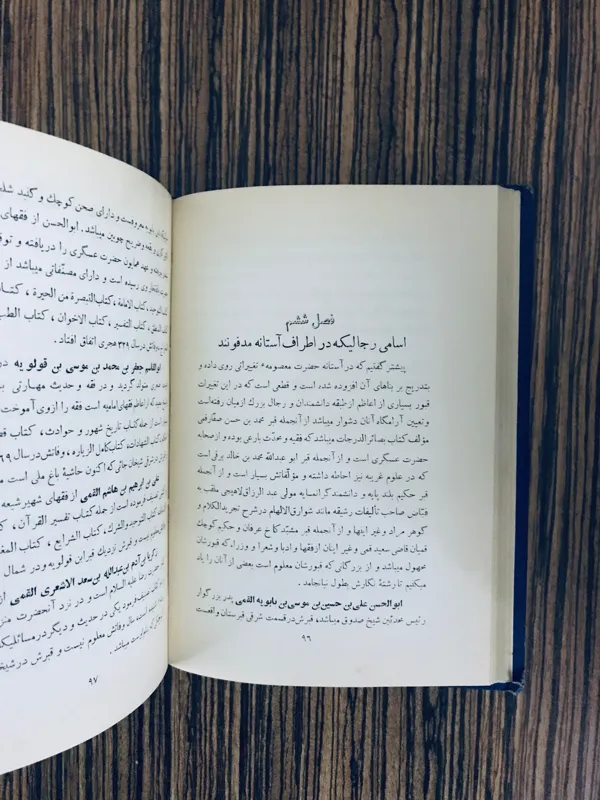 فصل ششم
اسامی رجالیکه در اطراف آستانه مدفونند
پیشتر گفتیم که در آستانه حضرت معصومه ع تغییراتی روی داده و
بتدریج بر بناهای آن افزوده شده است و قطعی است که در این تغییرات
قبور بسیاری از اعاظم از طبقه دانشمندان و رجال بزرك از میان رفته است
و تعیین آرامگاه آنان دشوار میباشد از آنجمله قبر محمد بن حسن صفار قمی
مؤلف کتاب بصائر الدرجات میباشد که فقیه و محدث بارعی بوده و از صحابه
حضرت عسکری است و از آنجمله قبر ابو عبدالله محمد بن خالد برقی است که
در علوم غریبه نیز احاطه داشته و مؤلفاتش بسیار است و از آنجمله
قبر حکیم بلند پایه و دانشمند گرانمایه مولی عبد الرزاق لاهیجی ملقب به
فیاض صاحب تألیفات رشیقه مانند شوارق الالهام در شرح تجرید الکلام و
گوهر مراد وغیر اینها و از آنجمله قبر مشید کاخ عرفان و حکیم کوچك
قمیان قاضی سعید قمی و غیر اینان از فقها و ادبا و شعرا و وزراء که قبورشان
مجهول میباشد و از بزرگانی که قبرشان معلوم است بعضی از آنان را یاد
میکنیم تا رشتهٔ نگارش بطول نیانجامد .
ابوالحسن علی بن حسین بن موسی بن بابویه القمی پدر بزرگوار
رئیس محدثین شیخ صدوق میباشد، قبرش در قسمت شرقی قبرستان واقعست
۹۶
معروفست و دارای صحن کوچك و گنبد
و ضریح چوبین میباشد . ابوالحسن از فقهای
و عهد همایون حضرت عسکری را دریافته و
رسیده است و دارای مصنفاتی میباشد از
کتاب الامامة ، کتاب التبصرة من الحیرة ،
کتاب التفسیر ، کتاب الاخوان ، کتاب الطب
در سال ۳۲۹ هجری اتفاق افتاد .
ابوالقاسم جعفر بن محمد بن موسی بن قولویه در
متولد گردید و در فقه و حدیث مهارتی
از اعاظم فقهای امامیه است فقه را از وی آموخت
از جمله کتاب تاریخ شهور و حوادث ، کتاب
کتاب الشهادات، کتاب کامل الزیاره، وفاتش در سال
شرقی شیخان جائی که اکنون حاشیهٔ باغ ملی است
علی بن ابراهیم بن هاشم القمی از فقهای شهیر شیعه
بوده است از جمله کتاب تفسیر القرآن ،
کتاب التوحید والشرك، کتاب الشرایع ، کتاب
و قبرش نزدیك قبر ابن قولویه و در شمال
زکریا بن آدم بن عبدالله بن سعد الاشعری القمی از
رضا علیه السلام است و در نزد آنحضرت
فرمود یکی در حدیث و دیگر در مسائلیکه
است سال وفاتش معلوم نیست و قبرش در
میباشد .
۹۷